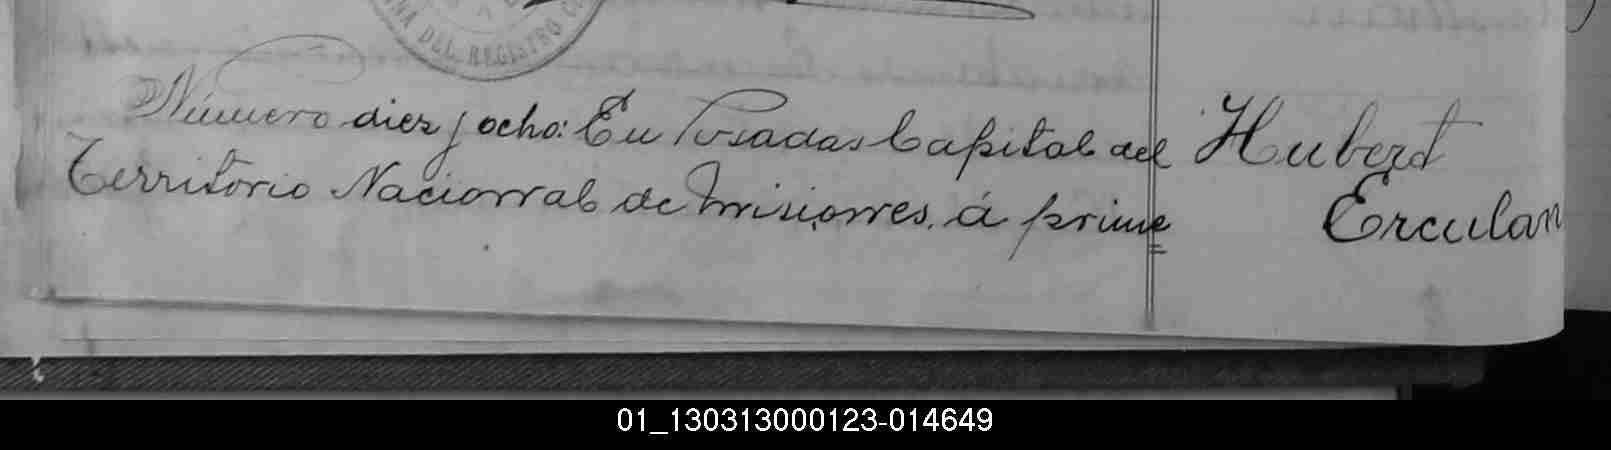 DEL REGISTRO
Número diez y ocho: En Posadas Capital del
Territorio Nacional de Misiones, á prime
Hubert
Erculan
01_130313000123-014649